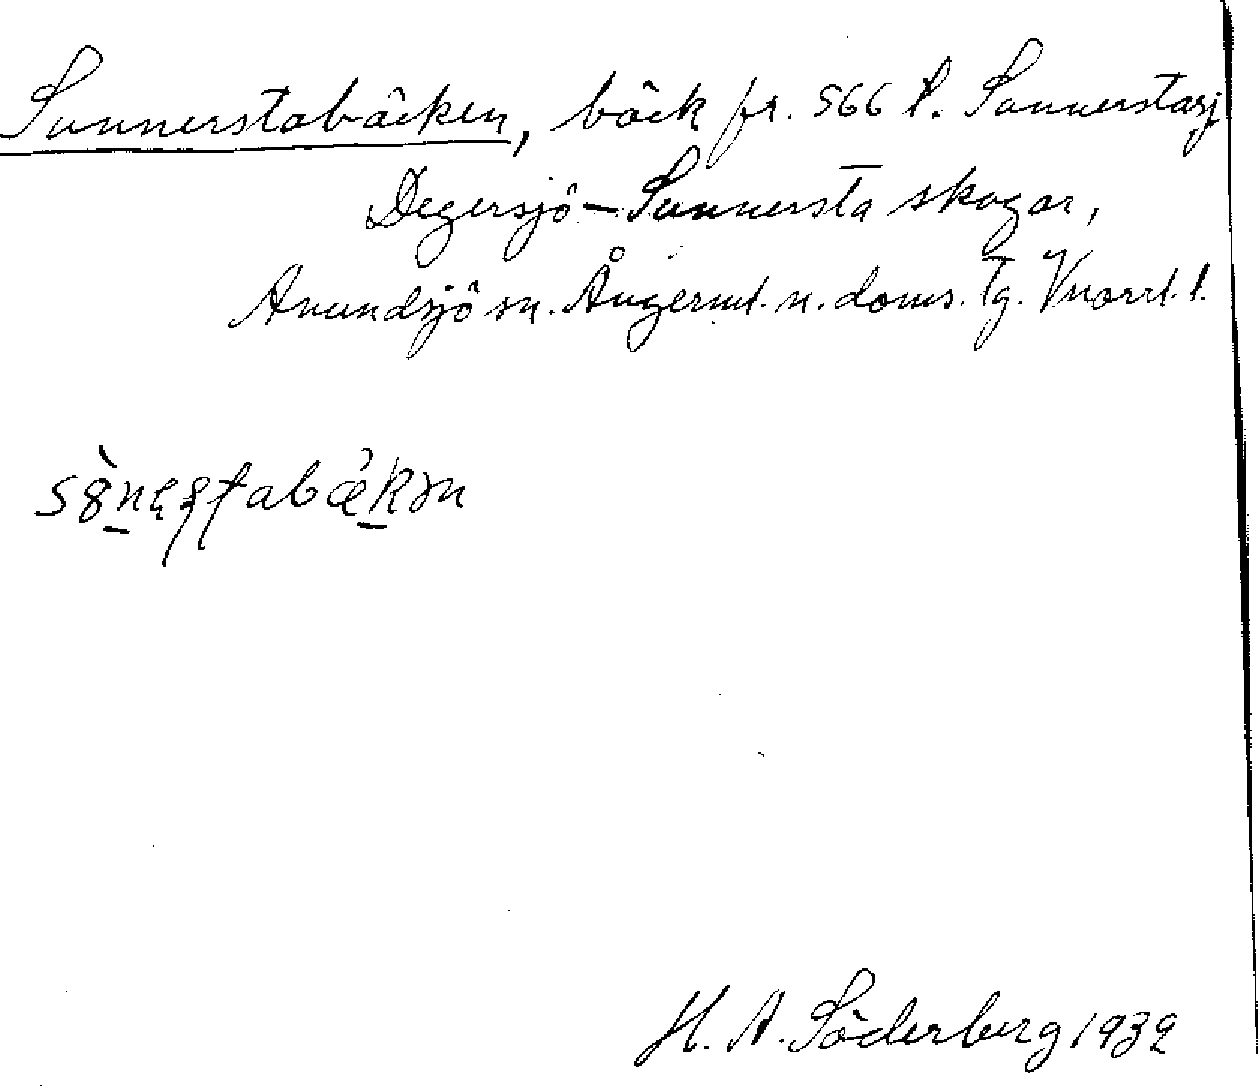 Sunnerstabäcken, bäck fr. 566 t. Sunnerstasj
Degersjö – Sunnersta skogar,
Anundsjö sn. Ångerml. n. doms. Tg. Vnorrl. l.
H. A. Söderberg 1932